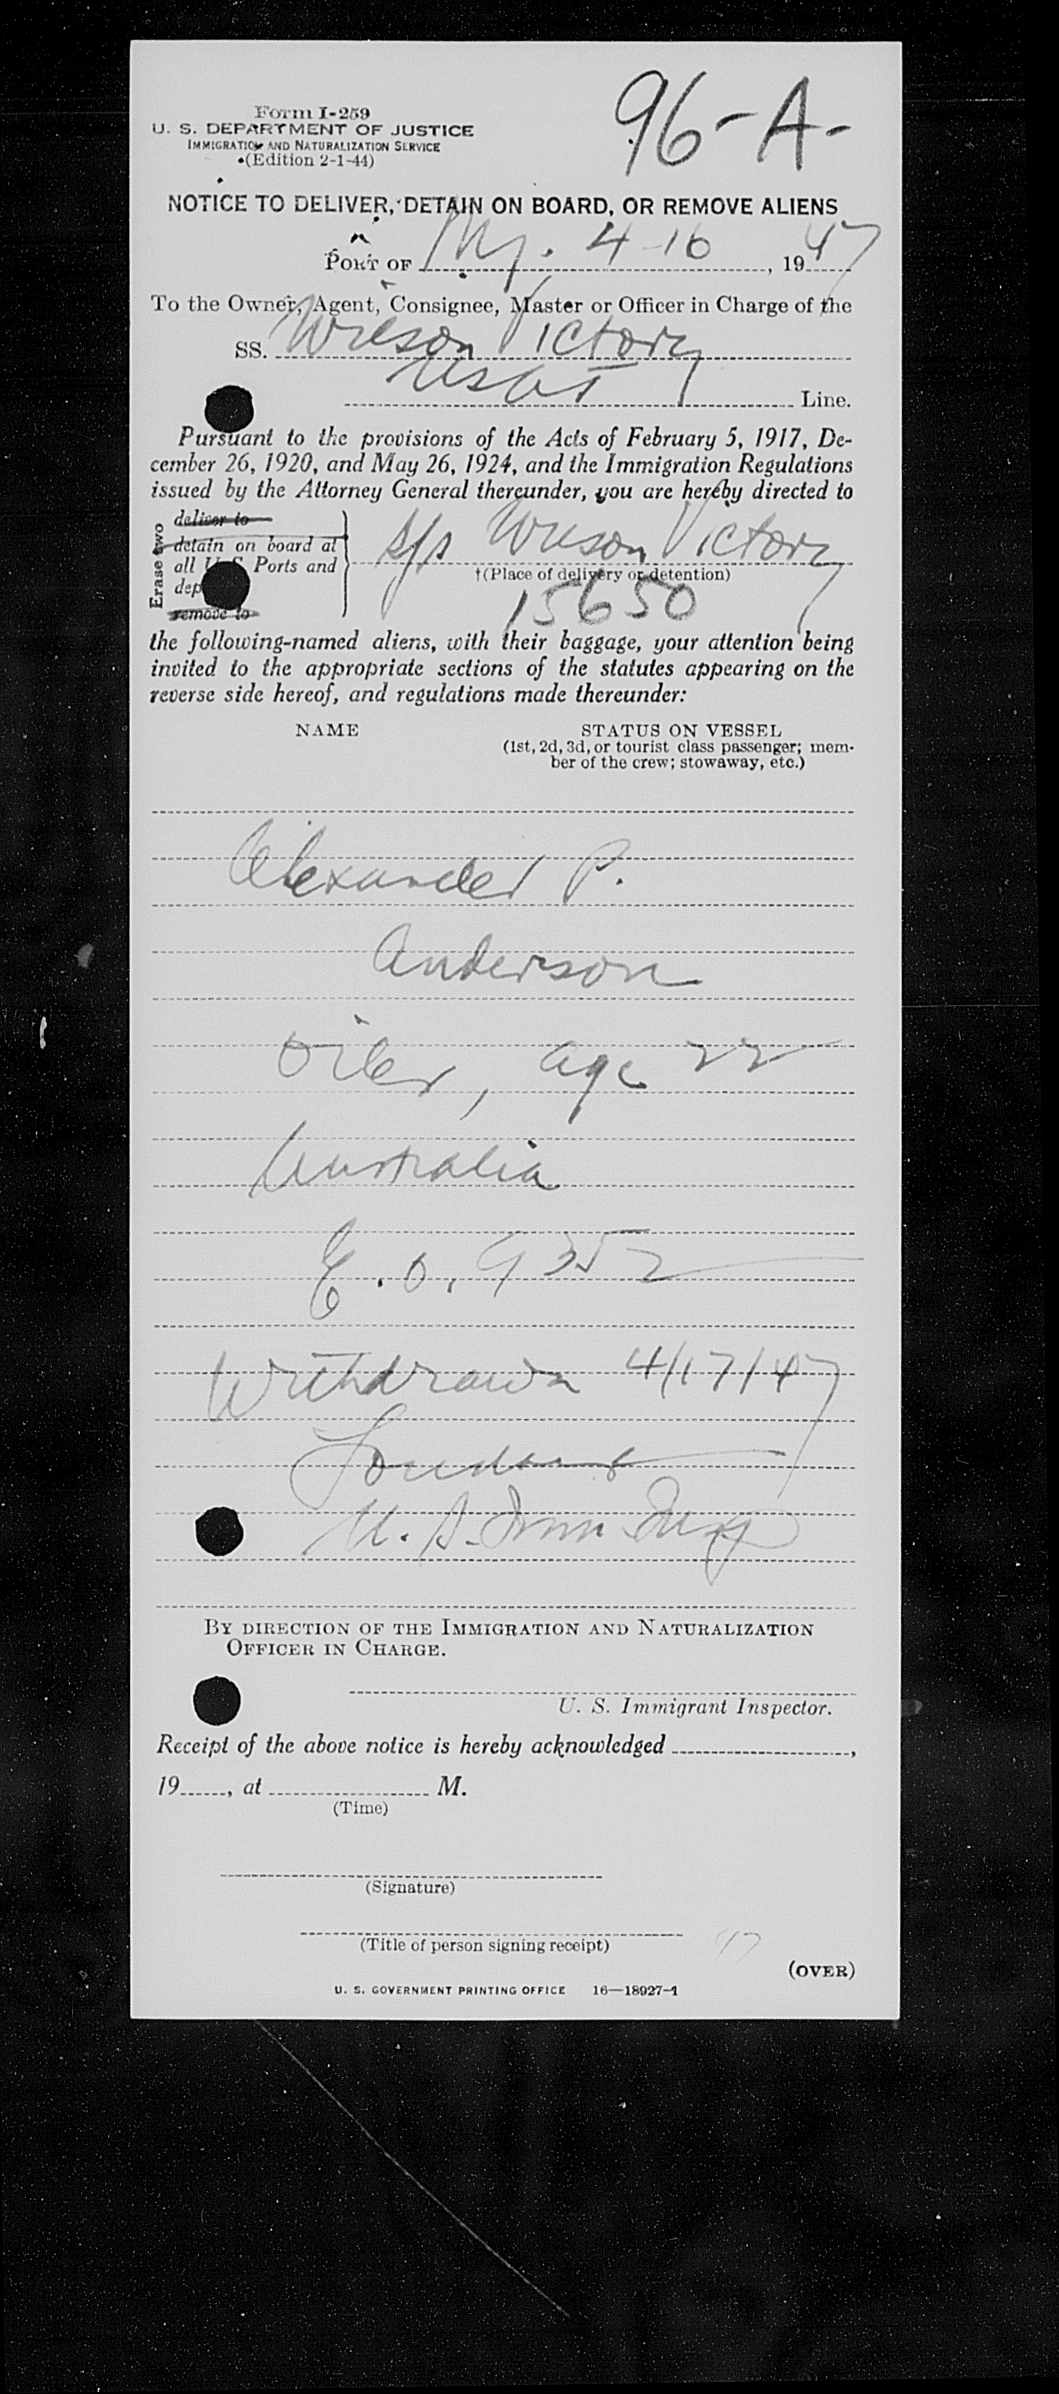 Form I-259
U. S. DEPARTMENT OF JUSTICE
IMMIGRATION AND NATURALIZATION SERVICE
(Edition 2-1-44)
96-A-
NOTICE TO DELIVER, DETAIN ON BOARD, OR REMOVE ALIENS
PORT OF N.Y. 4-16, 1947
To the Owner, Agent, Consignee, Master or Officer in Charge of the
SS. Wilson Victory
USAT Line.
Pursuant to the provisions of the Acts of February 5, 1917, De-
cember 26, 1920, and May 26, 1924, and the Immigration Regulations
issued by the Attorney General thereunder, you are hereby directed to
Erase two
deliver to
detain on board at
all U. S. Ports and
remove to
S/S Wilson Victory
†(Place of delivery or detention)
15650
the following-named aliens, with their baggage, your attention being
invited to the appropriate sections of the statutes appearing on the
reverse side hereof, and regulations made thereunder:
NAME STATUS ON VESSEL
(1st, 2d, 3d, or tourist class passenger; mem-
ber of the crew; stowaway, etc.)
Alexander P.
Anderson
Oiler, age 22
Australia
E.O. 9352
Withdrawn 4/17/47
U. S. Imm. Insp
BY DIRECTION OF THE IMMIGRATION AND NATURALIZATION
OFFICER IN CHARGE.
U. S. Immigrant Inspector.
Receipt of the above notice is hereby acknowledged ,
19 , at M.
(Time)
(Signature)
(Title of person signing receipt)
(OVER)
U. S. GOVERNMENT PRINTING OFFICE 16—18927-1